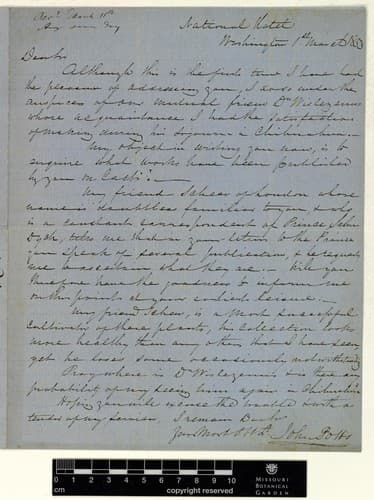 Recd March 11th
Ansd same day
National Hotel
Washington 1st March
Dear Sir
Although this is the first time I have had
the pleasure of addressing you, I do so under the
auspices of our mutual friend Dr Wislizenus
whose acquaintance I had the satisfaction
of making during his sojourn in Chihuahua.—
My object in writing you now, is to
enquire what works have been published
by you on Cacti?—
My friend Scheer of London whose
name is doubtless familiar to you, & who
is a constant correspondent of Prince Salm
Dyck, tells me that in your letters to the Prince
you speak of several publications, & he requests
me to ascertain what they are.— Will you
therefore have the goodness to inform me
on this point at your earliest leisure.—
My friend Scheer, is a most successful
cultivator of these plants, his collection looks
more healthy than any other that I have seen,
yet he loses some occasionally notwithstanding
Pray where is Dr Wislizenus & is there any
probability of my seeing him again in Chihuahua
Hoping you will excuse the trouble & with a
tender of my services I remain Dear Sir
Your Most Obt St. John Potts
0 1 2 3 4 5 6 7 8 9 10
cm
copyright reserved
MISSOURI
BOTANICAL
GARDEN